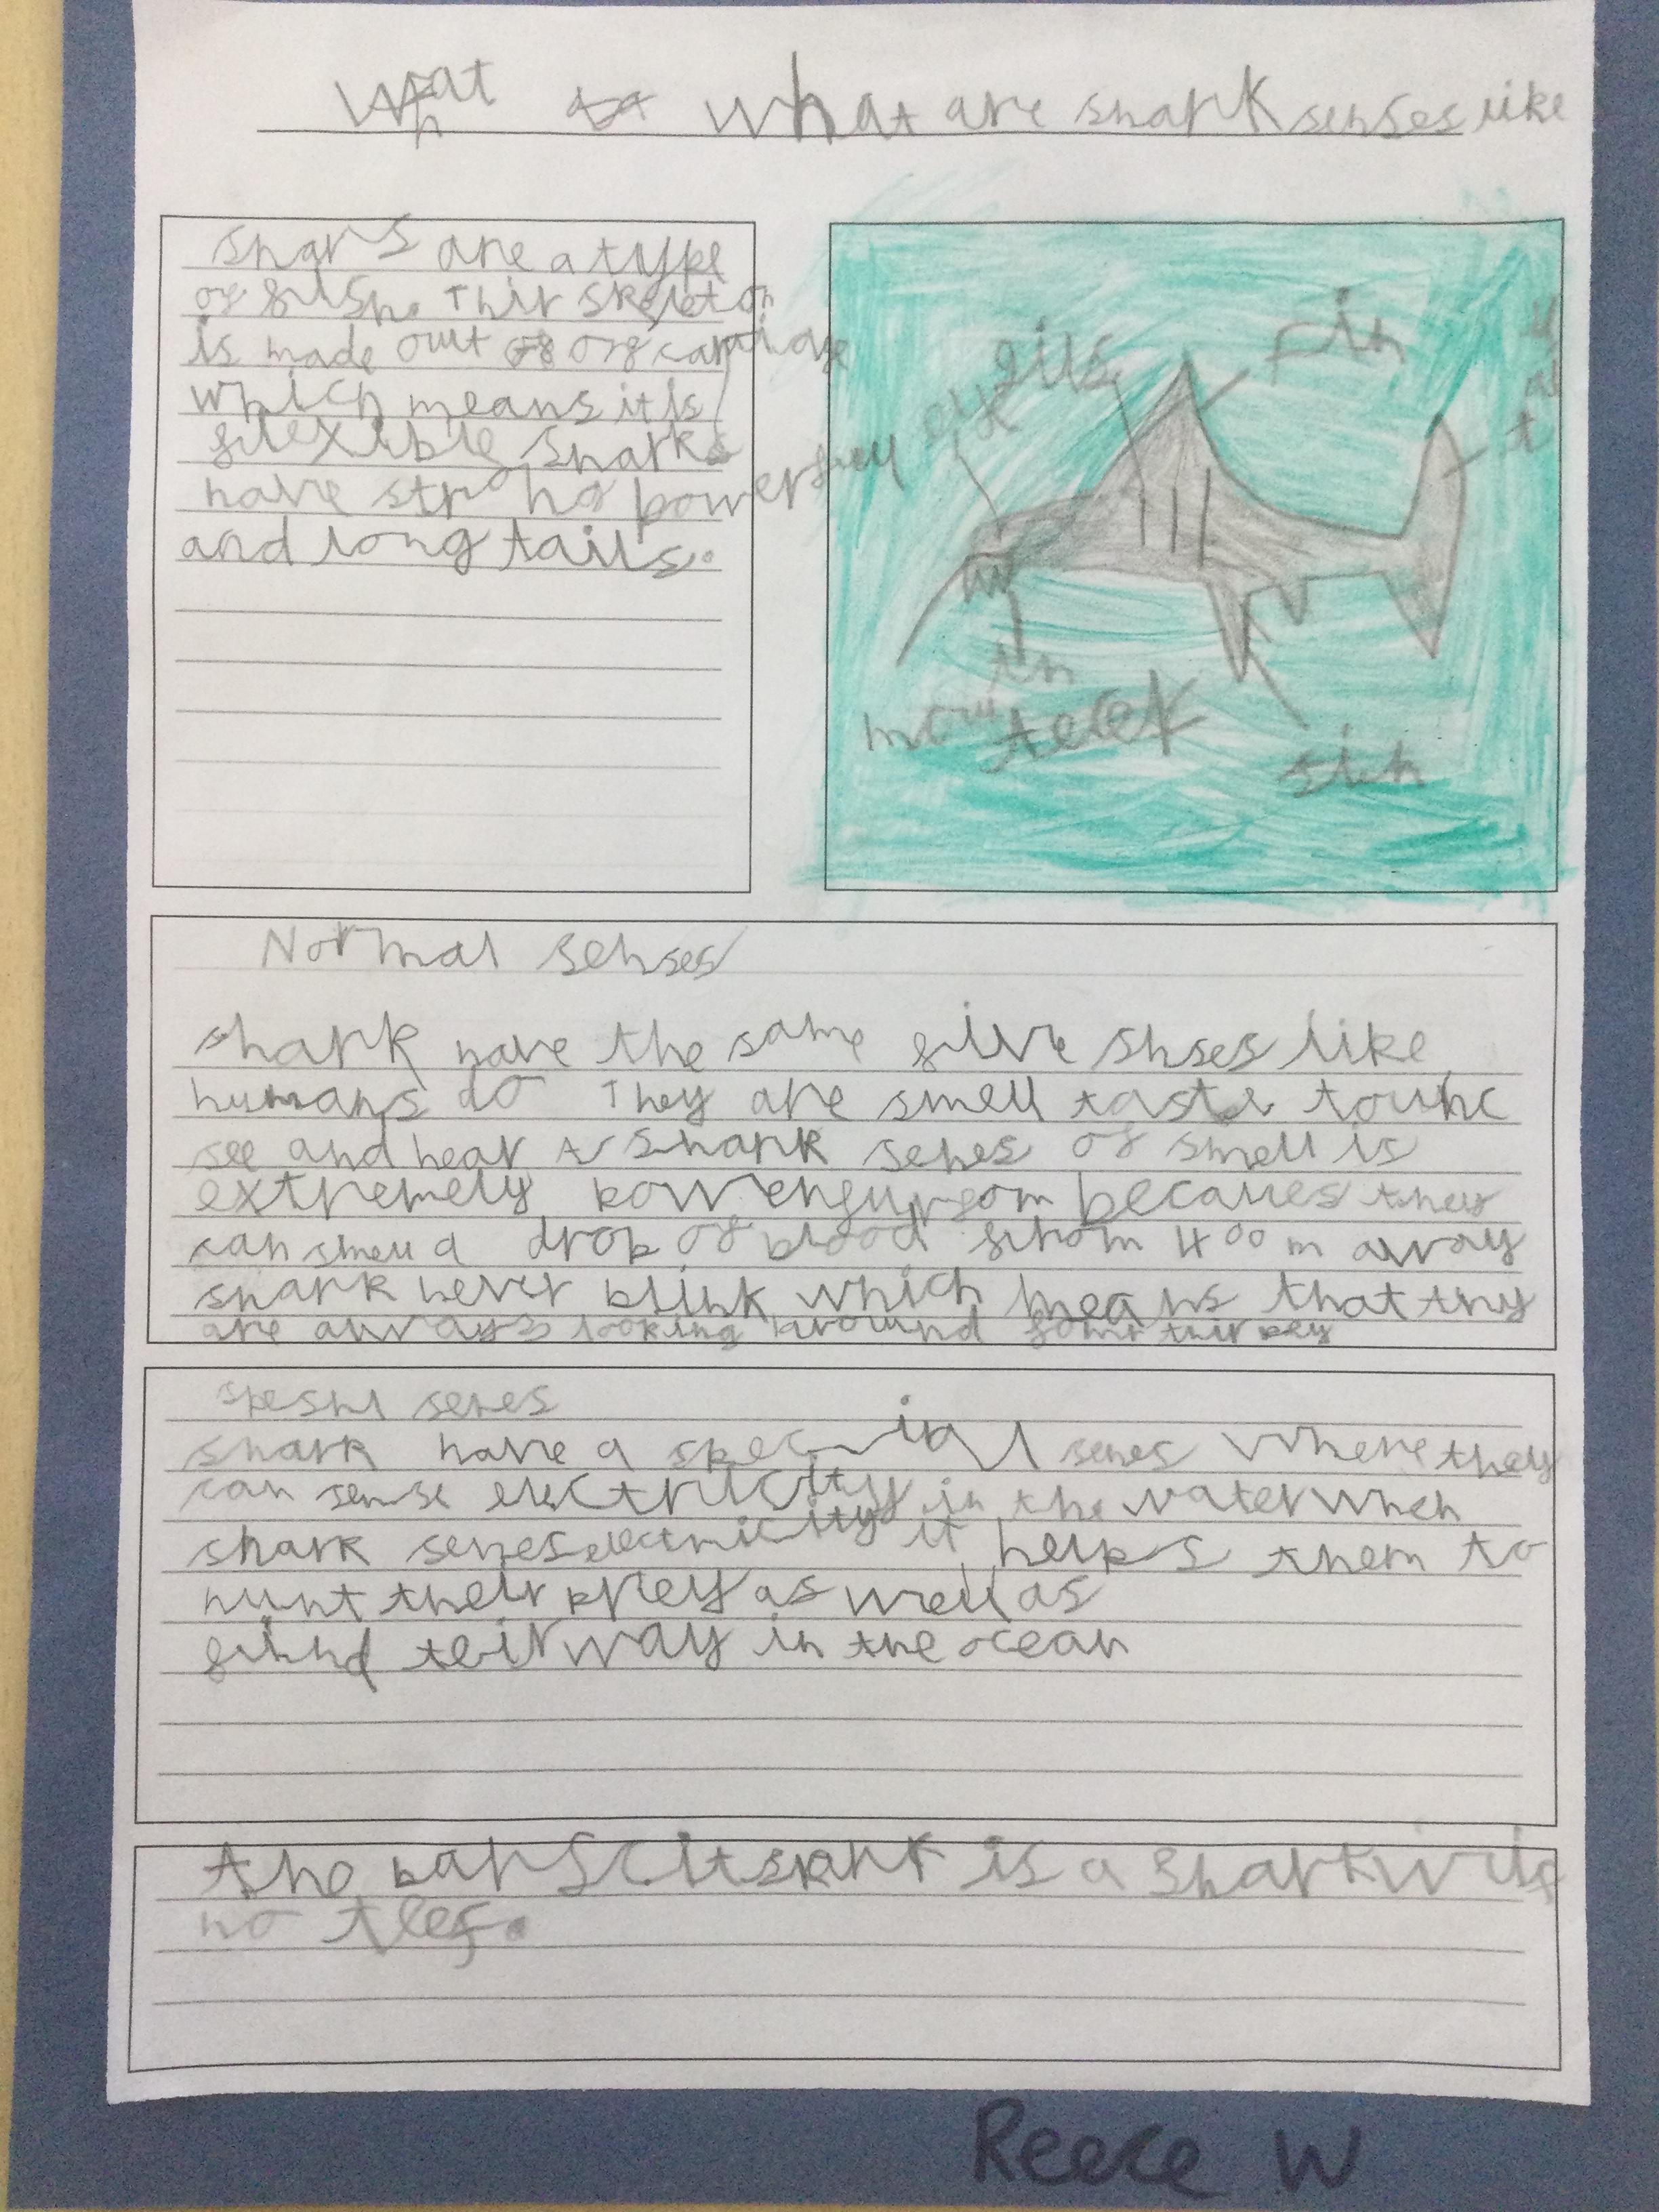 What are shark senses like
Shars are a type
of fish. Thir skeleton
is made owt of
which means it is
flexible sharks
have strong powerfuey
and long tails.
gills
fin
eye
tail
mouth
teeet
fin
Normal senses
shark have the same five shses like
humans do They are smell taste touhc
see and hear A shark senes of smell is
extremely powerfur becaues they
can smell a drop of blood fhrom 400m away
shark never blink which means that thy
are always looking around for thir
speshl senes
shark have a special senes where they
can sense electricity in the water when
shark senes electricity it helps them to
hunt their prey as well as
find teir way in the ocean
the is a shark
no
Reece W